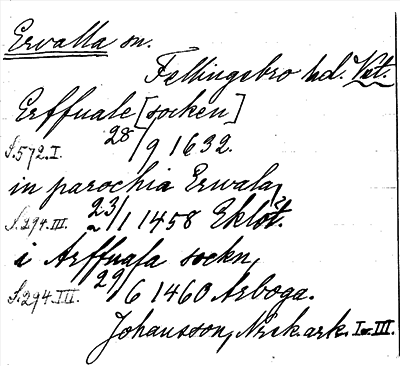 Ervalla sn.
Fellingsbro hd. Vstm.
Erffuale [socken]
S. 572. I. 28/9 1632.
in parochia Erwala,
S. 294. III. 23/1 1458 Eklöt.
i Arffuala sockn,
S. 294. III. 29/6 1460 Arboga.
Johansson, Norik. ark. I–III.